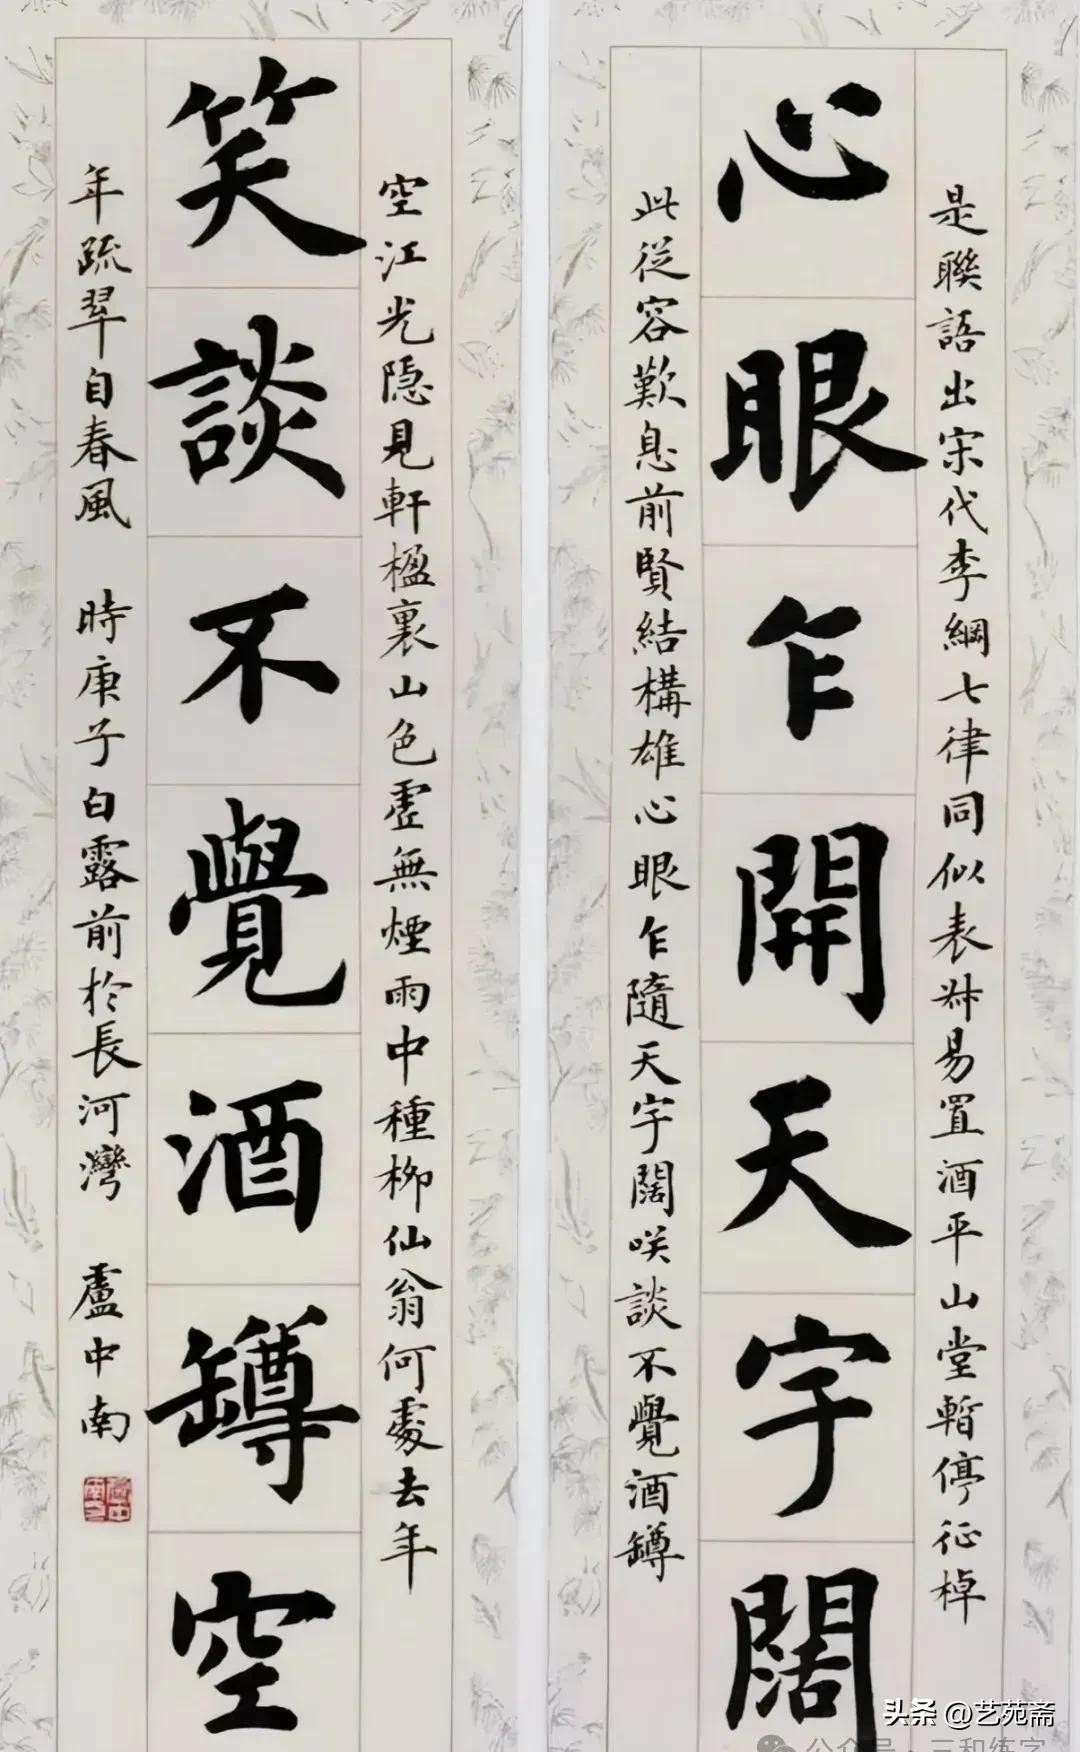 是聯語出宋代李綱七律同似表叔易置酒平山堂暫停征棹
心眼乍開天宇闊
此從容歎息前賢結構雄心眼乍隨天宇闊咲談不覺酒罇
空江光隱見軒楹裏山色虛無煙雨中種柳仙翁何處去年
笑談不覺酒罇空
年疏翠自春風 時庚子白露前於長河灣 盧中南
头条 @艺苑斋
公众号 · 三和练字